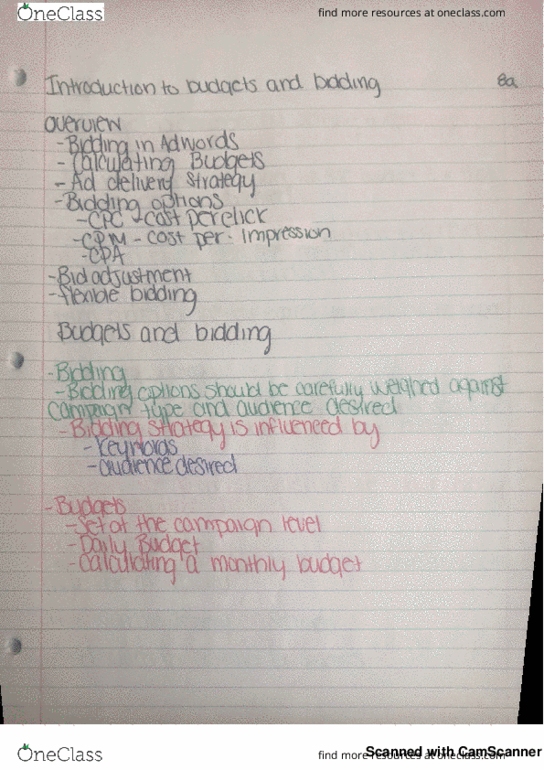 OneClass
find more resources at oneclass.com
Introduction to budgets and bidding 8a
overview
-Bidding in Adwords
- Calculating Budgets
- Ad delivery strategy
-Bidding options
-CPC - cost per click
-CPM - cost per impression
-CPA
-Bid adjustment
-flexible bidding
Budgets and bidding
-Bidding
-Bidding options should be carefully weighed against
campaign type and audience desired
-Bidding strategy is influenced by
-Keywords
-audience desired
-Budgets
-Set at the campaign level
-Daily Budget
-Calculating a monthly budget
OneClass
find more resources at oneclass.com
Scanned with CamScanner